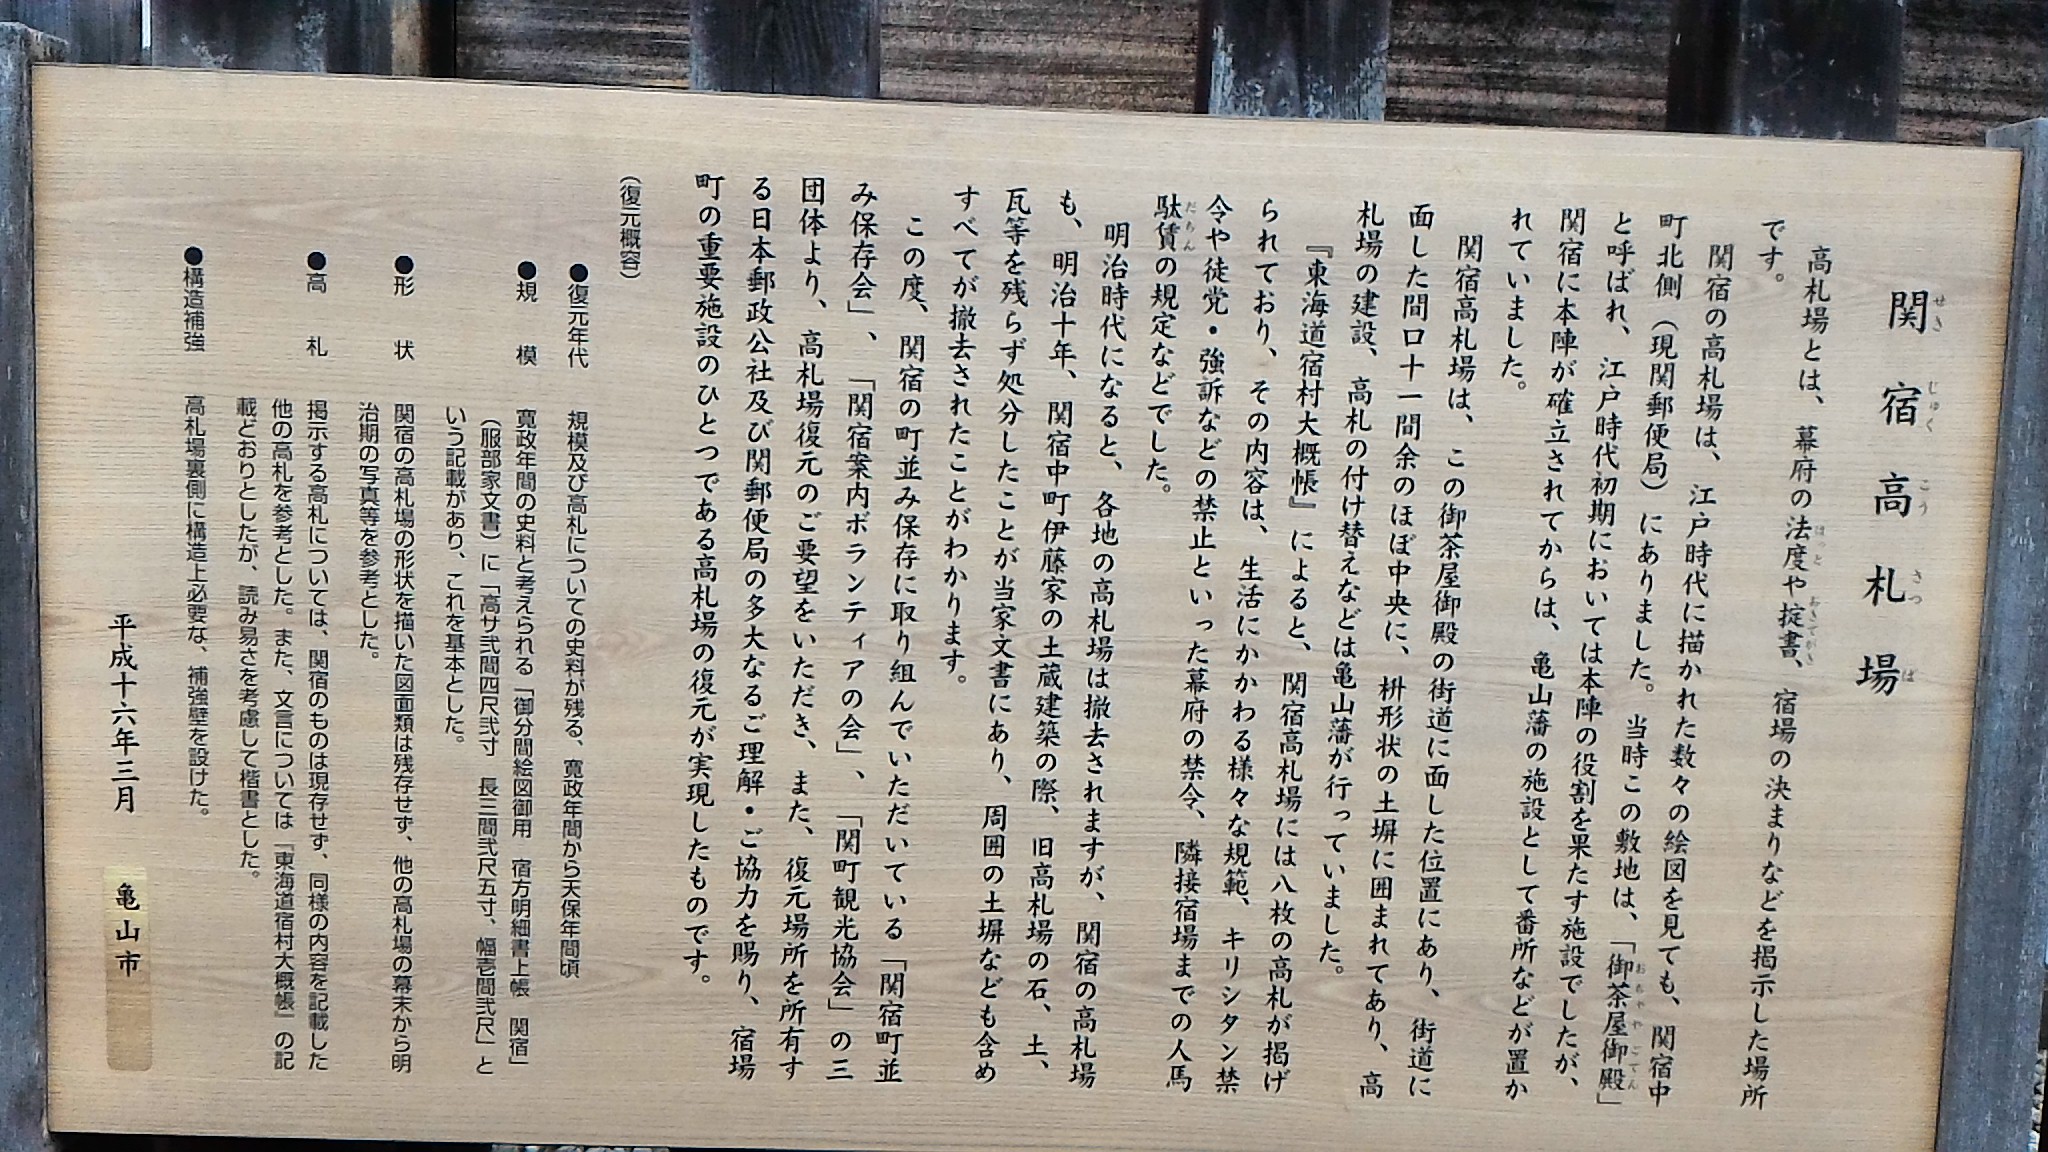 関宿高札場
高札場とは、幕府の法度や掟書、宿場の決まりなどを掲示した場所
です。
関宿の高札場は、江戸時代に描かれた数々の絵図を見ても、関宿中
町北側（現関郵便局）にありました。当時この敷地は、「御茶屋御殿」
と呼ばれ、江戸時代初期においては本陣の役割を果たす施設でしたが、
関宿に本陣が確立されてからは、亀山藩の施設として番所などが置か
れていました。
関宿高札場は、この御茶屋御殿の街道に面した位置にあり、街道に
面した間口十一間余のほぼ中央に、枡形状の土塀に囲まれてあり、高
札場の建設、高札の付け替えなどは亀山藩が行っていました。
『東海道宿村大概帳』によると、関宿高札場には八枚の高札が掲げ
られており、その内容は、生活にかかわる様々な規範、キリシタン禁
令や徒党・強訴などの禁止といった幕府の禁令、隣接宿場までの人馬
駄賃の規定などでした。
明治時代になると、各地の高札場は撤去されますが、関宿の高札場
も、明治十年、関宿中町伊藤家の土蔵建築の際、旧高札場の石、土、
瓦等を残らず処分したことが当家文書にあり、周囲の土塀なども含め
すべてが撤去されたことがわかります。
この度、関宿の町並み保存に取り組んでいただいている「関宿町並
み保存会」、「関宿案内ボランティアの会」、「関町観光協会」の三
団体より、高札場復元のご要望をいただき、また、復元場所を所有す
る日本郵政公社及び関郵便局の多大なるご理解・ご協力を賜り、宿場
町の重要施設のひとつである高札場の復元が実現したものです。
（復元概容）
●復元年代　規模及び高札についての史料が残る、寛政年間から天保年間頃
●規　模　寛政年間の史料と考えられる「御分間絵図御用　宿方明細書上帳　関宿」
（服部家文書）に「高サ弐間四尺弐寸　長三間弐尺五寸、幅壱間弐尺」と
いう記載があり、これを基本とした。
●形　状　関宿の高札場の形状を描いた図面類は残存せず、他の高札場の幕末から明
治期の写真等を参考とした。
●高　札　掲示する高札については、関宿のものは現存せず、同様の内容を記載した
他の高札を参考とした。また、文言については『東海道宿村大概帳』の記
載どおりとしたが、読み易さを考慮して楷書とした。
●構造補強　高札場裏側に構造上必要な、補強壁を設けた。
平成十六年三月　亀山市